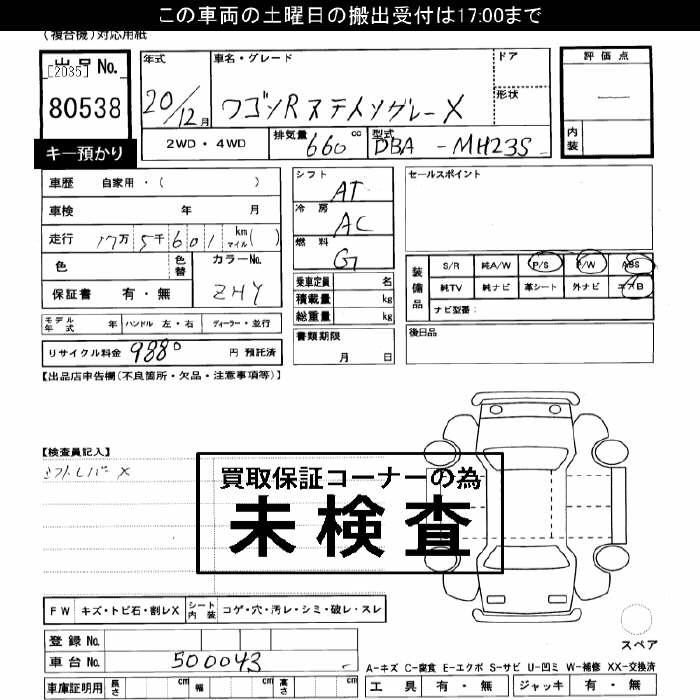 この車両の土曜日の搬出受付は17:00まで
(複合機)対応用紙
出品No.
[2035]
80538
キー預かり
年式
20/12月
車名・グレード
ワゴンR
ドア
形状
評価点
内装
2WD・4WD
排気量 660 cc
型式 DBA-MH23S
車歴 自家用・( )
車検 年 月
走行 17万5千601 km マイル( )
色 色替 カラーNo.
ZHY
保証書 有・無
モデル年式 年 ハンドル 左・右 ディーラー・並行
リサイクル料金 9880 円 預託済
シフト AT
冷房 AC
燃料 G
乗車定員 名
積載量 kg
総重量 kg
書類期限
月 日
セールスポイント
装備品
S/R 純A/W P/S P/W ABS
純TV 純ナビ 革シート 外ナビ エアB
ナビ型番:
後日品
【出品店申告欄(不良箇所・欠品・注意事項等)】
【検査員記入】
シフトレバー X
買取保証コーナーの為
未検査
FW キズ・トビ石・割レX シート内装 コゲ・穴・汚レ・シミ・破レ・スレ
登録No.
車台No. 500043
車庫証明用 長さ cm 幅 cm 高さ cm
スペア
A-キズ C-腐食 E-エクボ S-サビ U-凹ミ W-補修 XX-交換済
工具 有・無 ジャッキ 有・無